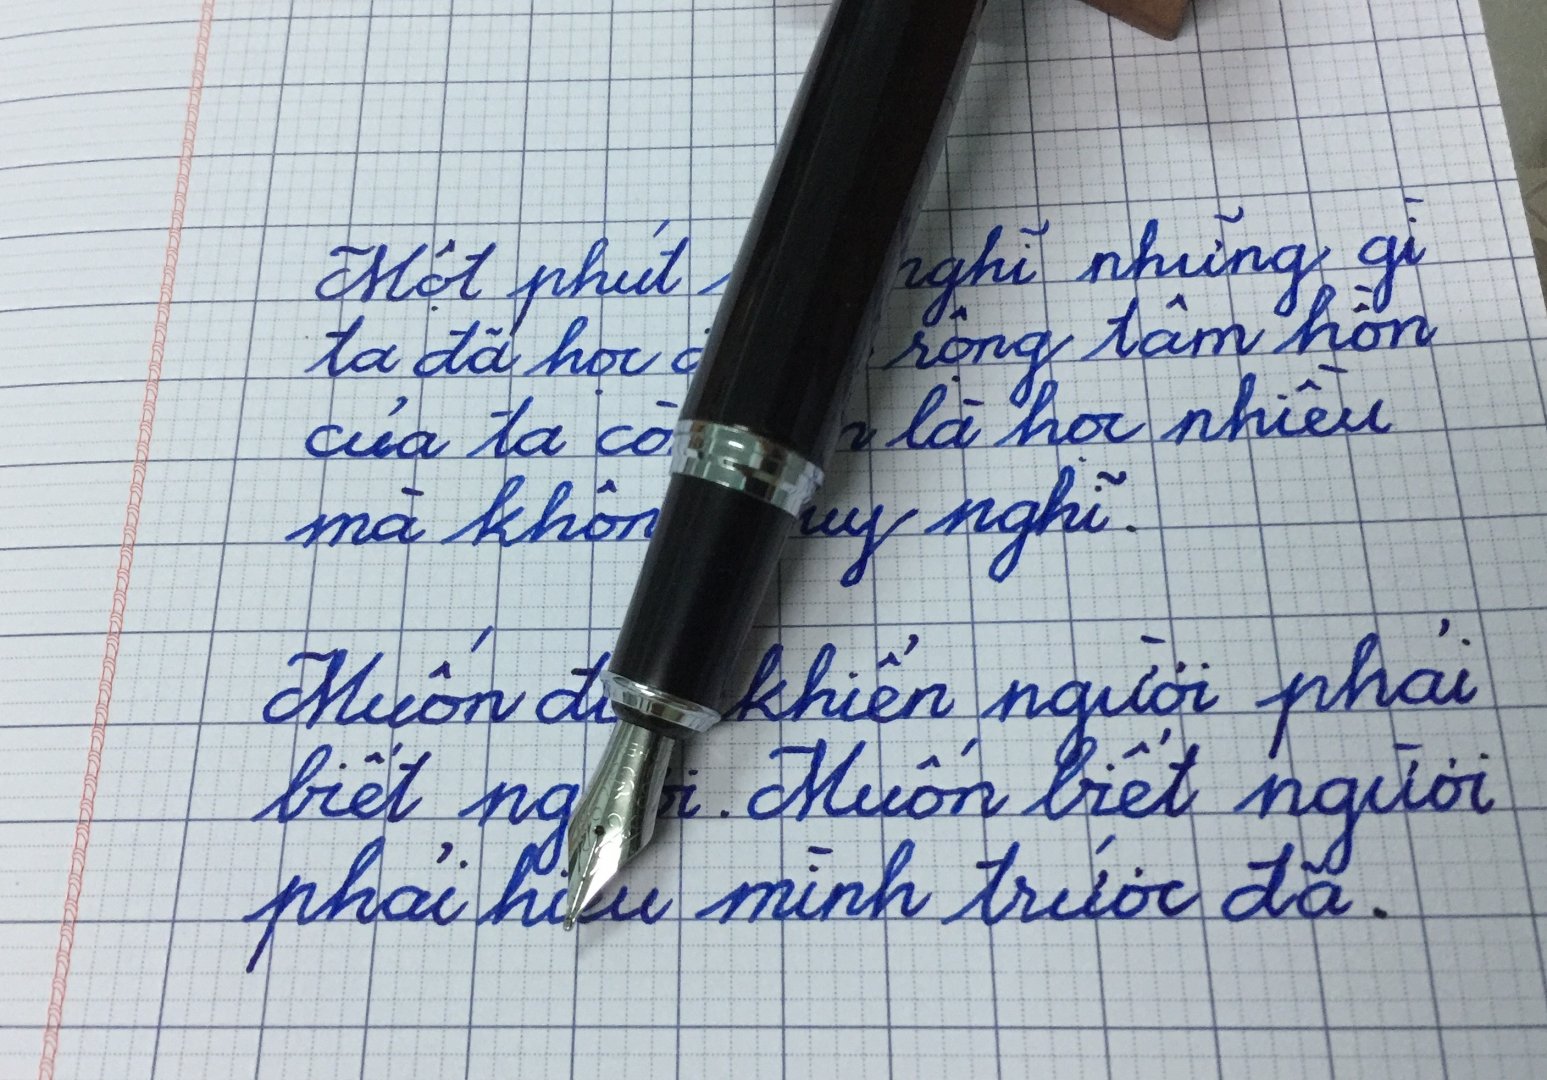 Một phút nghĩ những gì
ta đã học rộng tâm hồn
của ta còn là học nhiều
mà không suy nghĩ.
Muốn điều khiển người phải
biết người. Muốn biết người
phải hiểu mình trước đã.